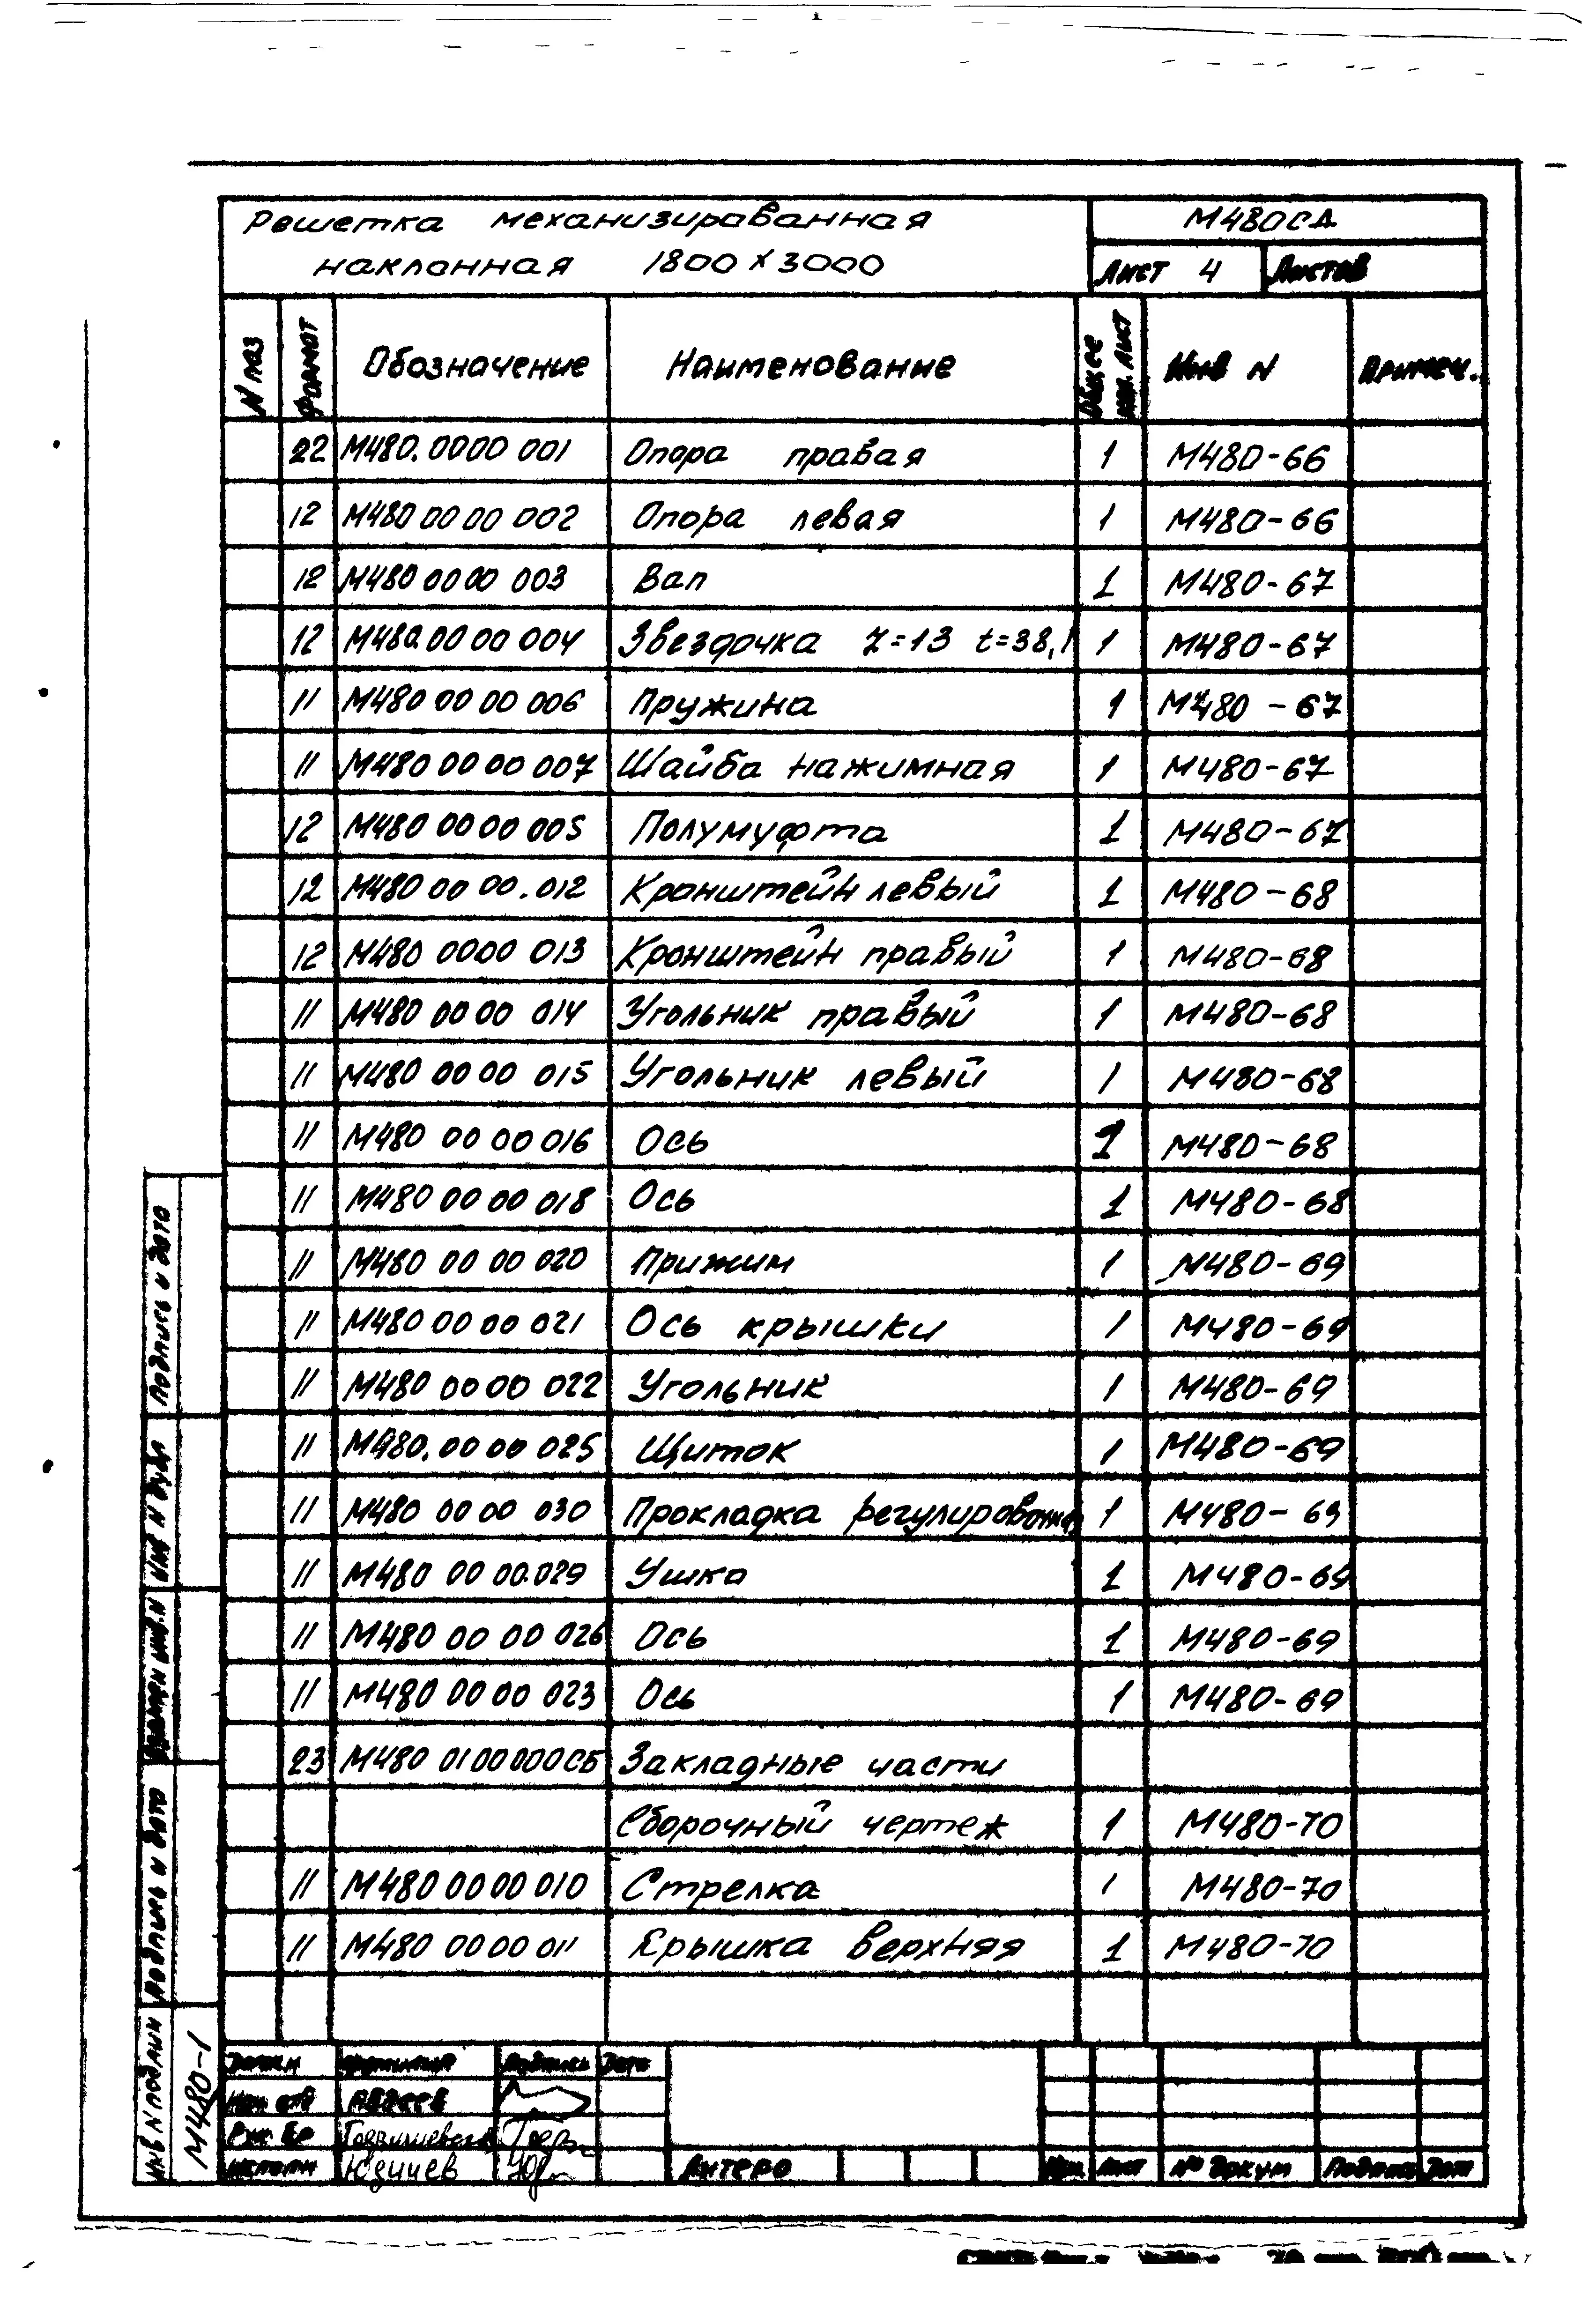 Решетка механизированная М480СД
наклонная 1800 х 3000 Лист 4 Листов
N поз Формат Обозначение Наименование Общее кол. лист Инв N Примеч.
22 М480.0000 001 Опора правая 1 М480-66
12 М480 00 00 002 Опора левая 1 М480-66
12 М480 00 00 003 Вал 1 М480-67
12 М480.00 00 004 Звездочка Z=13 t=38,1 1 М480-67
11 М480 00 00 006 Пружина 1 М480-67
11 М480 00 00 007 Шайба нажимная 1 М480-67
12 М480 00 00 005 Полумуфта 1 М480-67
12 М480 00 00.012 Кронштейн левый 1 М480-68
12 М480 0000 013 Кронштейн правый 1 М480-68
11 М480 00 00 014 Угольник правый 1 М480-68
11 М480 00 00 015 Угольник левый 1 М480-68
11 М480 00 00 016 Ось 1 М480-68
11 М480 00 00 018 Ось 1 М480-68
11 М480 00 00 020 Прижим 1 М480-69
11 М480 00 00 021 Ось крышки 1 М480-69
11 М480 00 00 022 Угольник 1 М480-69
11 М480.00 00 025 Щиток 1 М480-69
11 М480 00 00 030 Прокладка 1 М480-69
11 М480 00 00.029 Ушко 1 М480-69
11 М480 00 00 026 Ось 1 М480-69
11 М480 00 00 023 Ось 1 М480-69
23 М480 01 00 000СБ Закладные части
Сборочный чертеж 1 М480-70
11 М480 00 00 010 Стрелка 1 М480-70
11 М480 00 00 011 Крышка верхняя 1 М480-70
Подпись и дата
Инв N дубл
Взамен инв.N
Подпись и дата
Инв N подлин
М480-1
Фамилия Подпись Дата
Авдеев
Рук Бр
Исполн Юдичев Литера Изм Лист № докум Подпись Дат